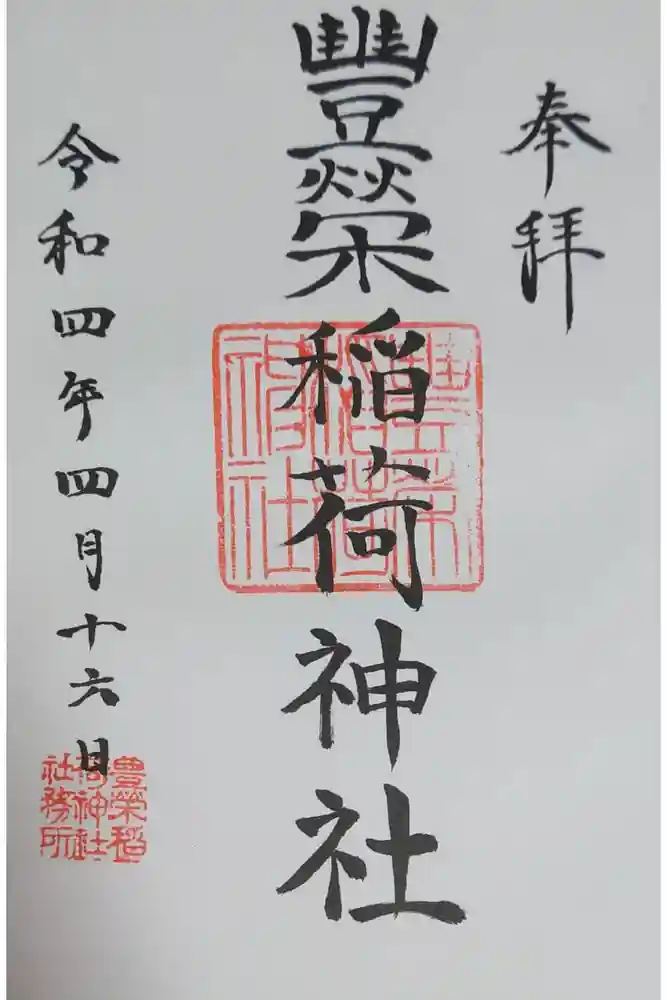 奉拝
豐榮稲荷神社
豊榮稲荷神社
令和四年四月十六日
豊榮稲
荷神社
社務所